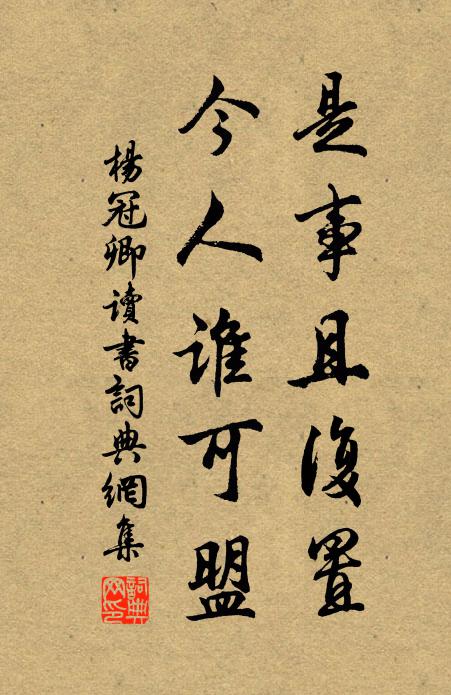 是事且復置
今人誰可盟
楊冠卿讀書詞典網集
詞典網印